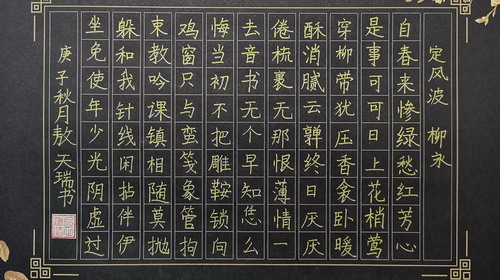 定风波 柳永
自春来惨绿愁红芳心
是事可可日上花梢莺
穿柳带犹压香衾卧暖
酥消腻云亸终日厌厌
倦梳裹无那恨薄情一
去音书无个早知恁么
悔当初不把雕鞍锁向
鸡窗只与蛮笺象管拘
束教吟课镇相随莫抛
躲和我针线闲拈伴伊
坐免使年少光阴虚过
庚子秋月敖天瑞书